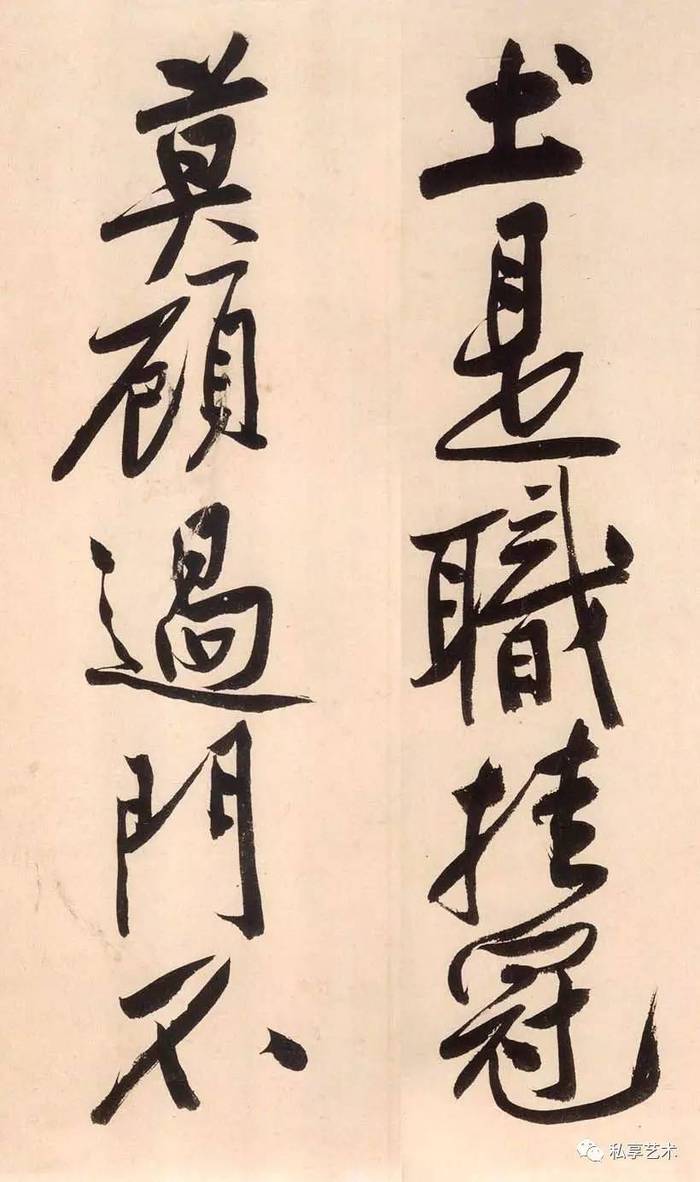 土是職掛冠
莫顧過門不
私享艺术